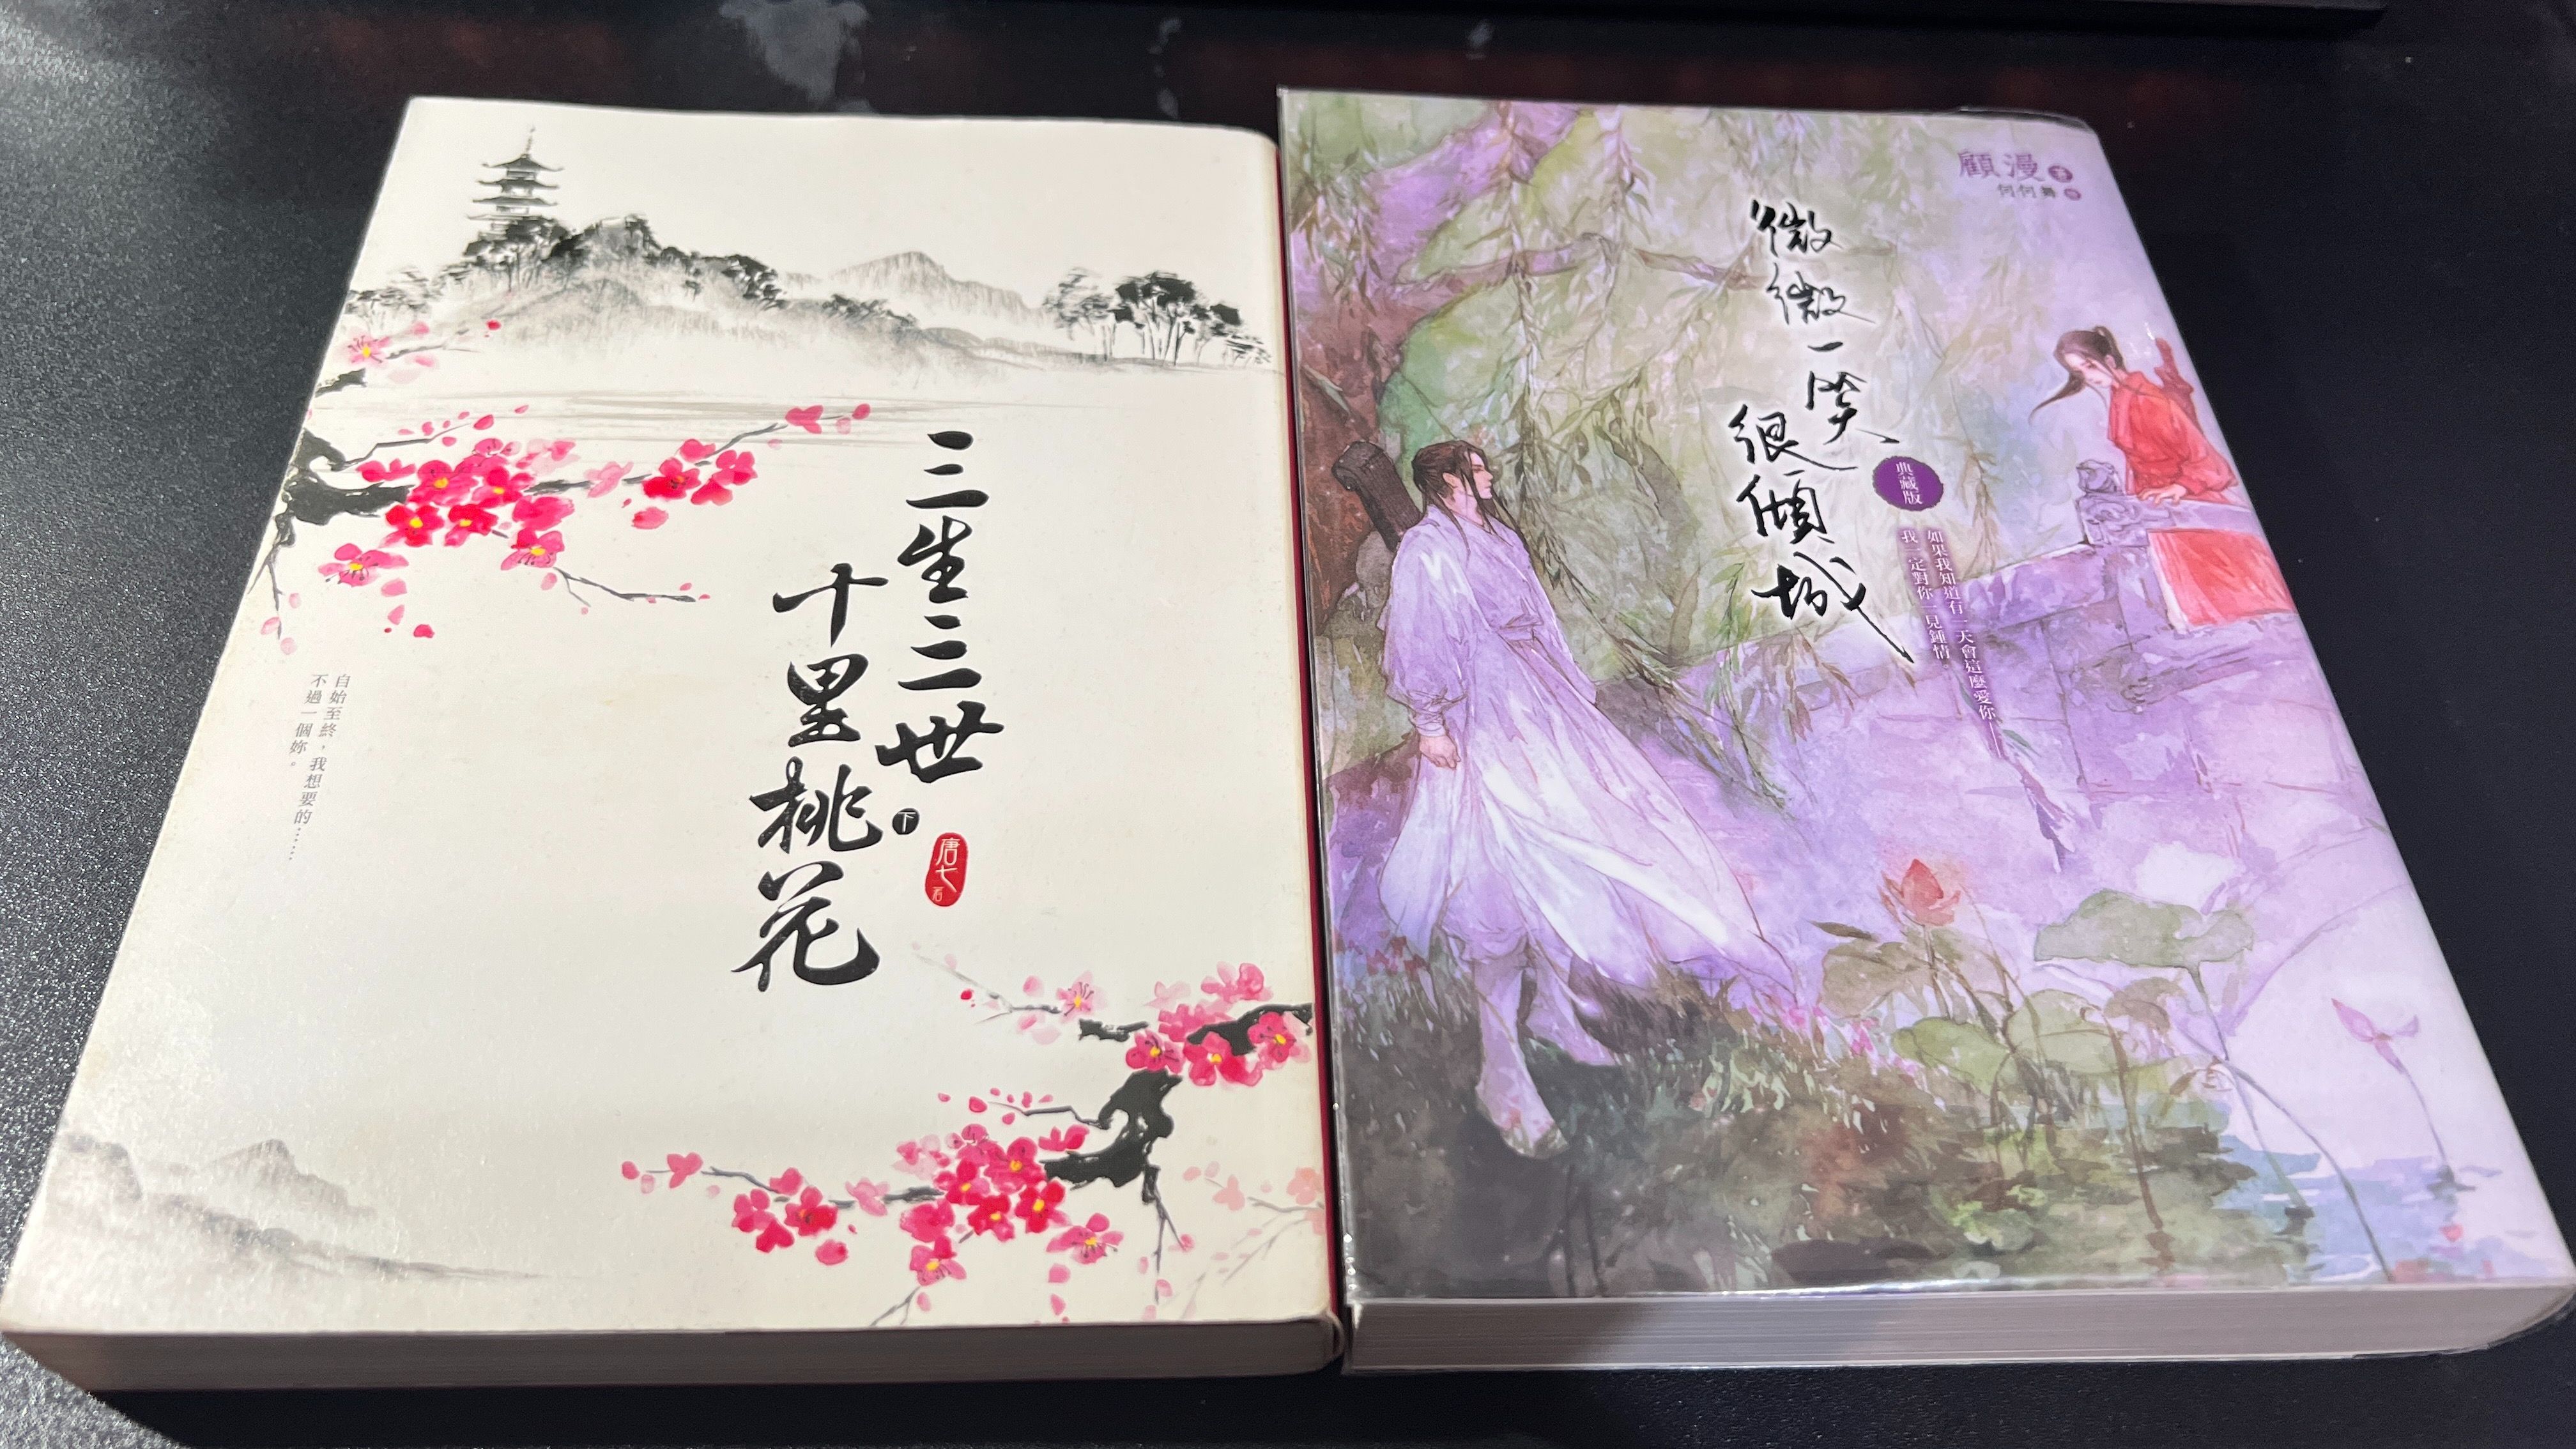 三生三世
十里桃花
下
唐七 著
自始至終，我想要的……
不過一個妳。
顧漫 著
何何舞 繪
微微一笑
很傾城
典藏版
如果我知道有一天會這麼愛你——
我一定對你一見鍾情